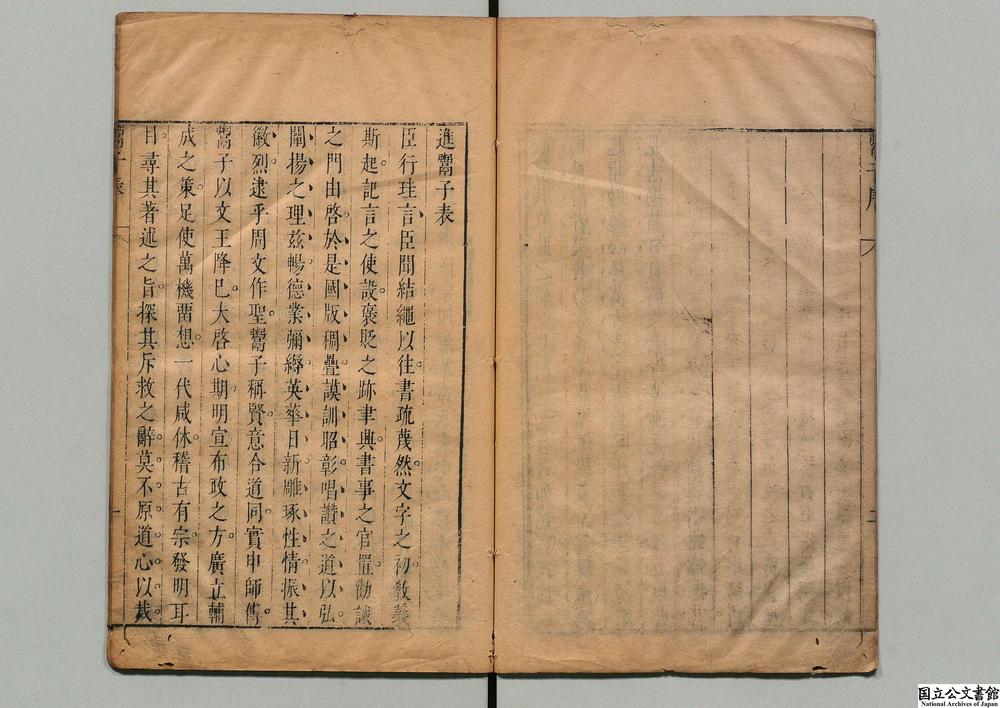 鬻子序
二
進鬻子表
臣行珪言臣聞結繩以往書疏蔑然文字之初教義
斯起記言之使設褒貶之跡聿興書事之官置勸誡
之門由啓於是國版稠疊謨訓昭彰唱讚之道以弘
闡揚之理兹暢德業彌縟英華日新雕琢性情振其
徽烈逮乎周文作聖鬻子稱賢意合道同實申師傅
鬻子以文王降己大啓心期明宣布政之方廣立輔
成之策足使萬機畱想一代咸休稽古有宗發明耳
目尋其著述之旨探其斥救之辭莫不原道心以裁
鬻子表
一
国立公文書館
National Archives of Japan